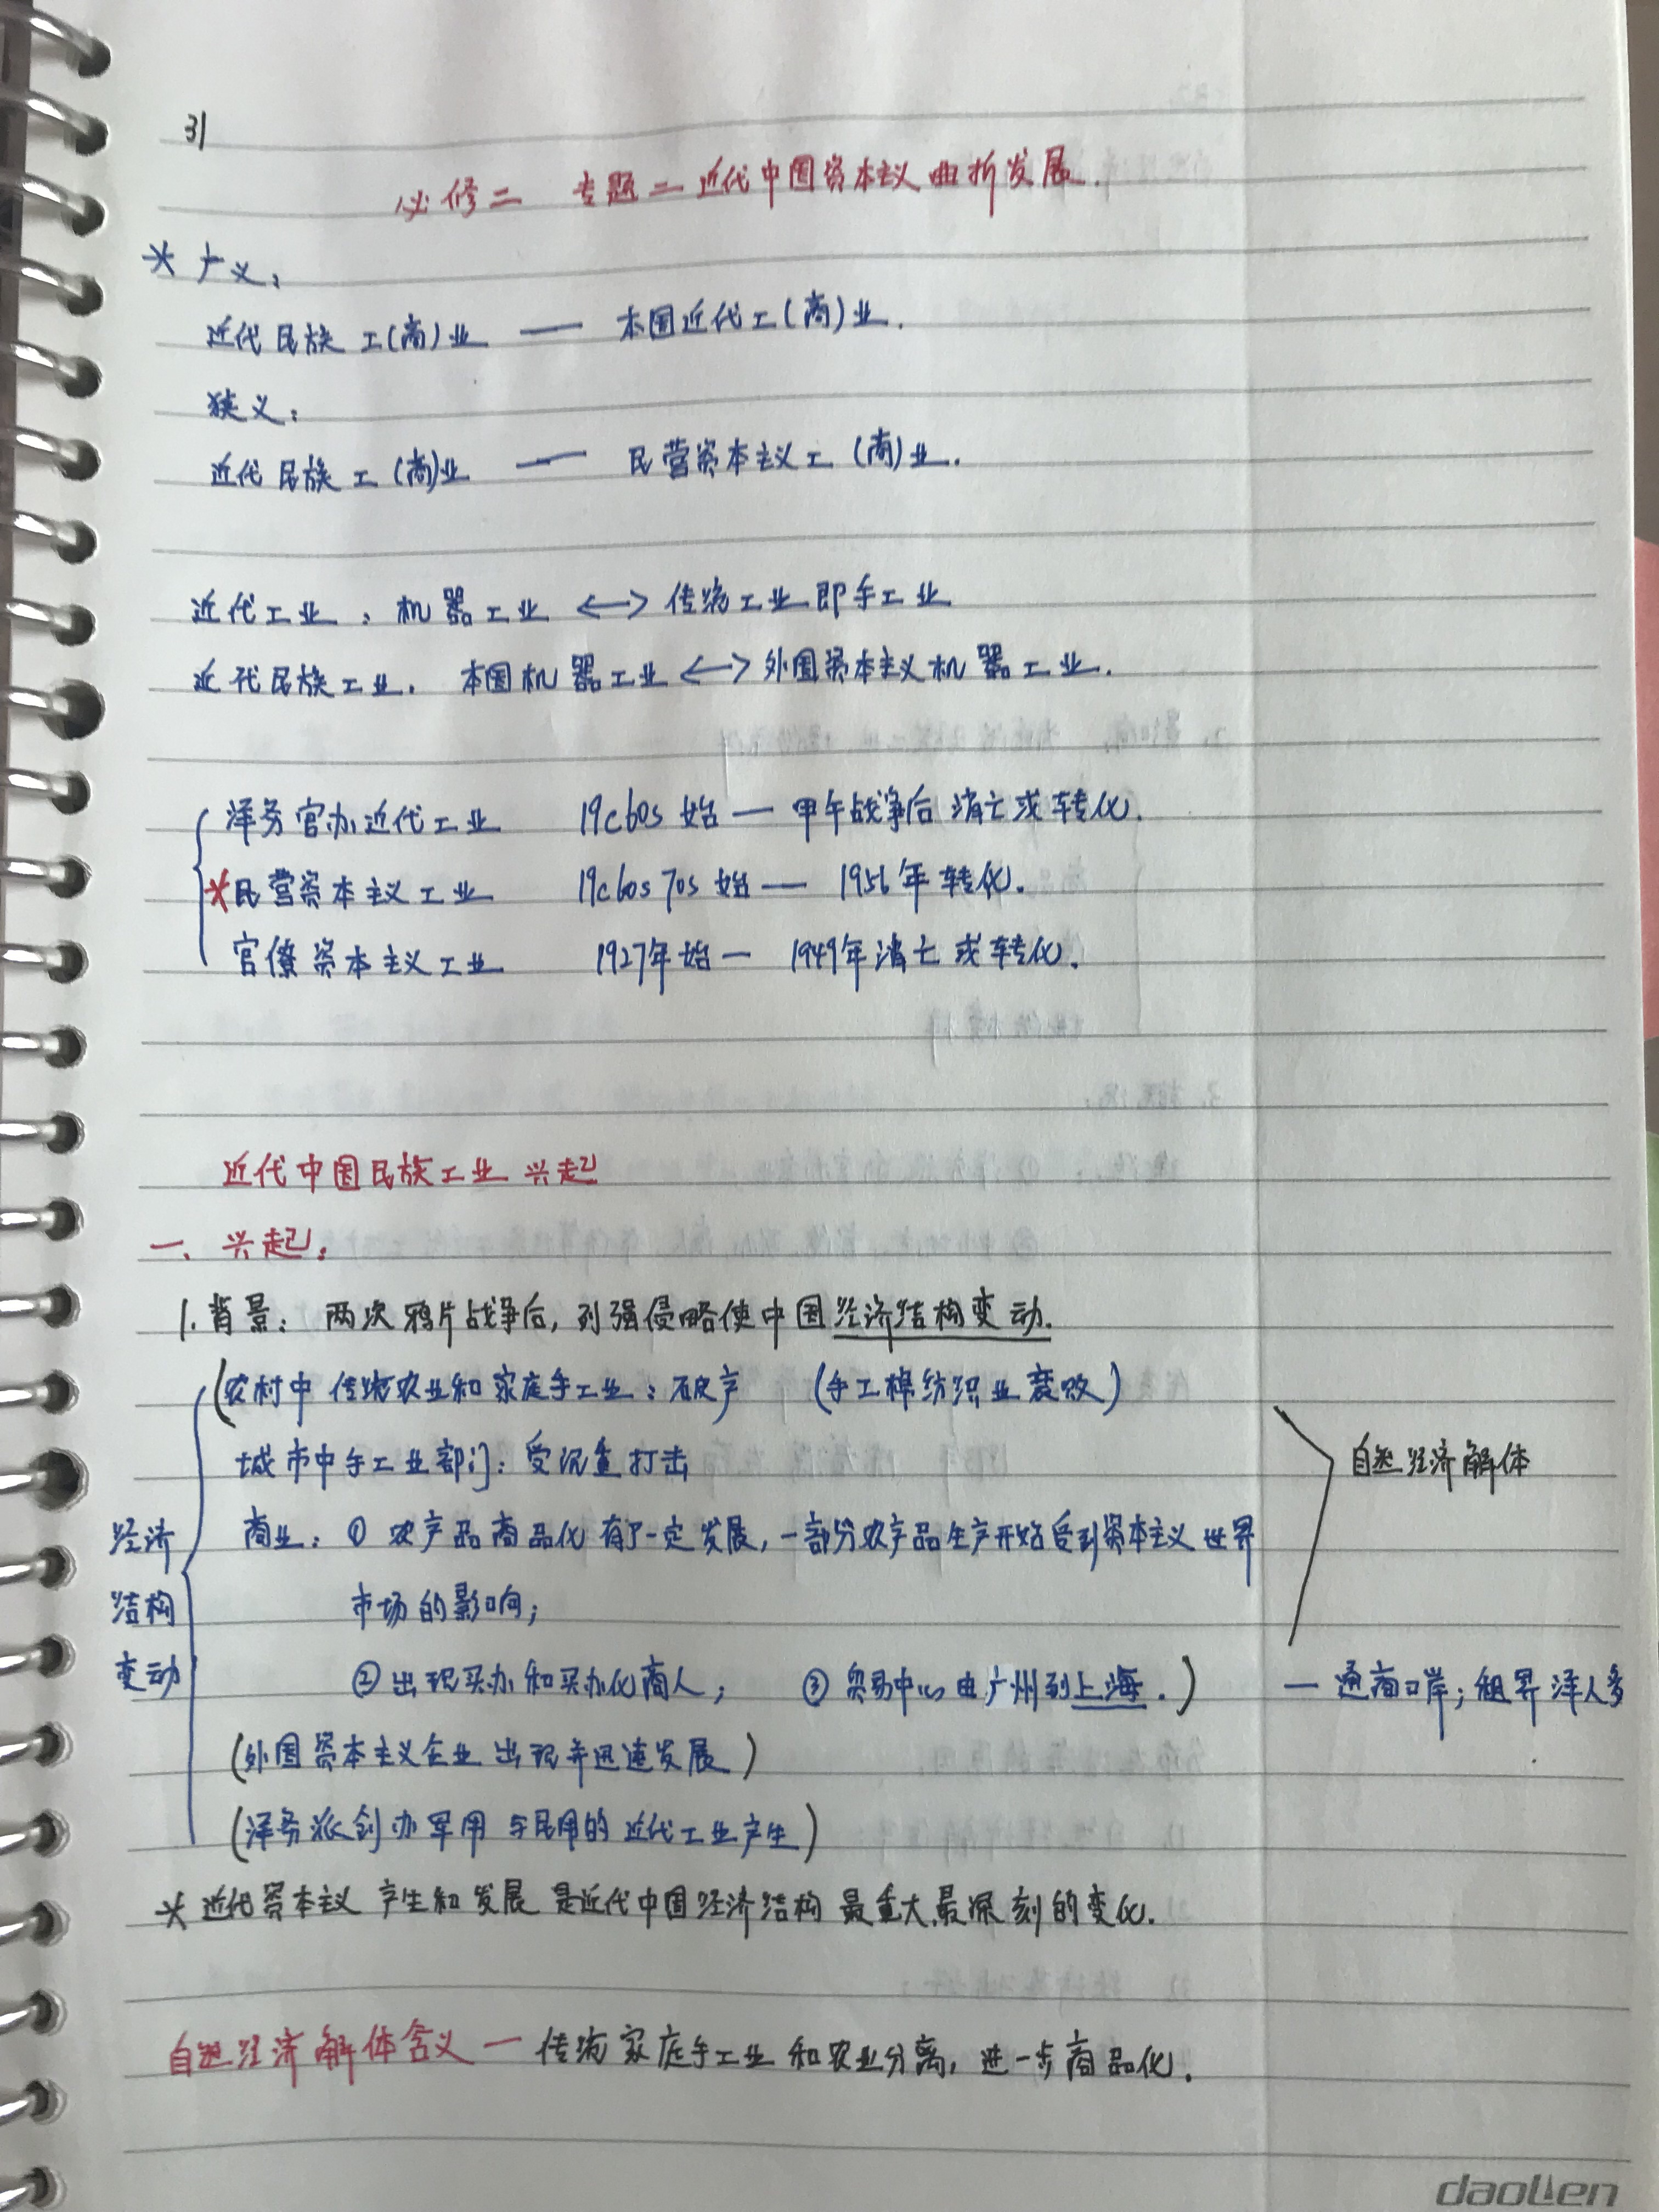 31
必修二 专题二 近代中国资本主义曲折发展.
* 广义:
近代民族工(商)业 —— 本国近代工(商)业.
狭义:
近代民族工(商)业 —— 民营资本主义工(商)业.
近代工业: 机器工业 <—> 传统工业即手工业
近代民族工业. 本国机器工业 <—> 外国资本主义机器工业.
洋务官办近代工业 19c60s 始 — 甲午战争后 消亡或转化.
*民营资本主义工业 19c60s 70s 始 —— 1956年转化.
官僚资本主义工业 1927年始 — 1949年消亡或转化.
近代中国民族工业 兴起
一、兴起:
1. 背景: 两次鸦片战争后, 列强侵略使中国经济结构变动.
(农村中 传统农业和家庭手工业: 破产 (手工棉纺织业衰败)
城市中手工业部门: 受沉重打击
自然经济解体
经济
商业: ① 农产品商品化有了一定发展, 一部分农产品生产开始受到资本主义世界
结构
市场的影响;
变动
② 出现买办和买办化商人; ③ 贸易中心由广州到上海.) — 通商口岸; 租界洋人多
(外国资本主义企业出现并迅速发展)
(洋务派创办军用与民用的近代工业产生)
* 近代资本主义产生和发展是近代中国经济结构最重大、最深刻的变化.
自然经济解体含义 — 传统家庭手工业和农业分离, 进一步商品化.
daolien